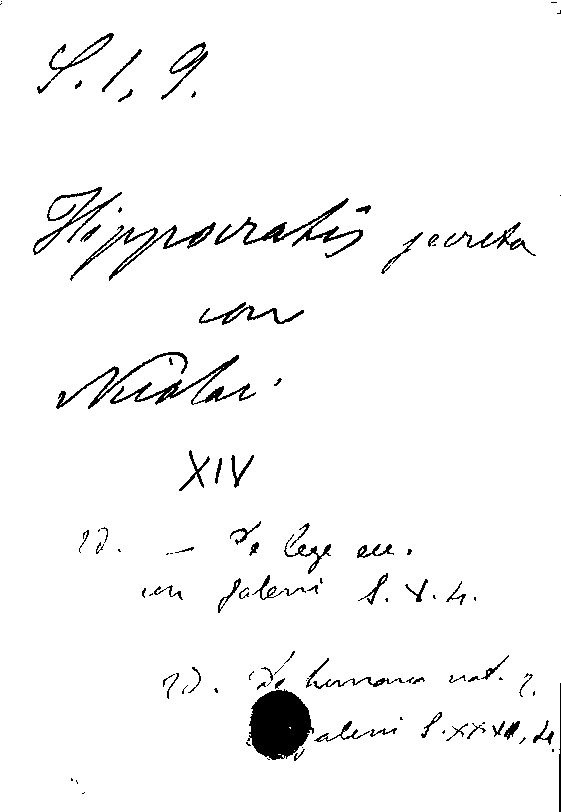 S. I, 9.
Hippocratis secreta
con
Nicolai
XIV
Id. — De lege ecc.
con Galeni S. X. 4.
Id. De humana nat.
Galeni S. XXVII, 4.